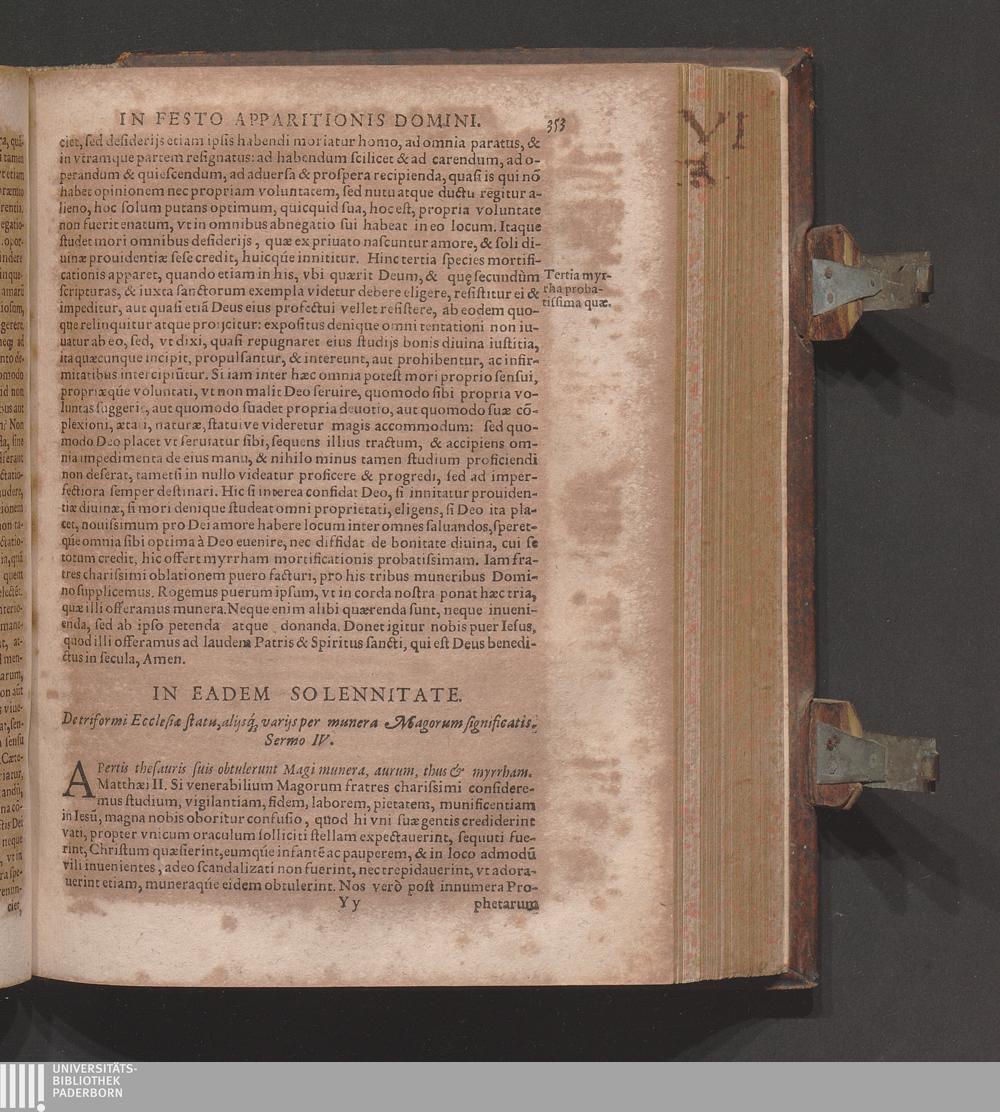 IN FESTO APPARITIONIS DOMINI. 353
ciet, sed desiderijs etiam ipsis habendi moriatur homo, ad omnia paratus, &
in vtramque partem resignatus: ad habendum scilicet & ad carendum, ad o-
perandum & quiescendum, ad aduersa & prospera recipienda, quasi is qui nõ
habet opinionem nec propriam voluntatem, sed nutu atque ductu regitur a-
lieno, hoc solum putans optimum, quicquid sua, hoc est, propria voluntate
non fuerit enatum, vt in omnibus abnegatio sui habeat in eo locum. Itaque
studet mori omnibus desiderijs, quæ ex priuato nascuntur amore, & soli di-
uinæ prouidentiæ sese credit, huicq́ue innititur. Hinc tertia species mortifi-
cationis apparet, quando etiam in his, vbi quærit Deum, & quę secundùm
scripturas, & iuxta sanctorum exempla videtur debere eligere, resistitur ei &
impeditur, aut quasi etiã Deus eius profectui vellet resistere, ab eodem quo-
que relinquitur atque proijcitur: expositus denique omni tentationi non iu-
uatur ab eo, sed, vt dixi, quasi repugnaret eius studijs bonis diuina iustitia,
ita quæcunque incipit, propulsantur, & intereunt, aut prohibentur, ac infir-
mitatibus intercipiũtur. Si iam inter hæc omnia potest mori proprio sensui,
propriæq́ue voluntati, vt non malit Deo seruire, quomodo sibi propria vo-
luntas suggerit, aut quomodo suadet propria deuotio, aut quomodo suæ cõ-
plexioni, ætati, naturæ, statui ve videretur magis accommodum: sed quo-
modo Deo placet vt seruiatur sibi, sequens illius tractum, & accipiens om-
nia impedimenta de eius manu, & nihilo minus tamen studium proficiendi
non deserat, tametsi in nullo videatur proficere & progredi, sed ad imper-
fectiora semper destinari. Hic si interea confidat Deo, si innitatur prouiden-
tiæ diuinæ, si mori denique studeat omni proprietati, eligens, si Deo ita pla-
cet, nouissimum pro Dei amore habere locum inter omnes saluandos, speret-
q́ue omnia sibi optima à Deo euenire, nec diffidat de bonitate diuina, cui se
totum credit, hic offert myrrham mortificationis probatissimam. Iam fra-
tres charissimi oblationem puero facturi, pro his tribus muneribus Domi-
no supplicemus. Rogemus puerum ipsum, vt in corda nostra ponat hæc tria,
quæ illi offeramus munera. Neque enim alibi quærenda sunt, neque inueni-
enda, sed ab ipso petenda atque donanda. Donet igitur nobis puer Iesus,
quod illi offeramus ad laudem Patris & Spiritus sancti, qui est Deus benedi-
ctus in secula, Amen.
Tertia myr-
rha proba-
tissima quæ.
IN EADEM SOLENNITATE.
De triformi Ecclesiæ statu, alijsq́; varijs per munera Magorum significatis.
Sermo IV.
APertis thesauris suis obtulerunt Magi munera, aurum, thus & myrrham.
Matthæi II. Si venerabilium Magorum fratres charissimi considere-
mus studium, vigilantiam, fidem, laborem, pietatem, munificentiam
in Iesũ, magna nobis oboritur confusio, quod hi vni suæ gentis crediderint
vati, propter vnicum oraculum solliciti stellam expectauerint, sequuti fue-
rint, Christum quæsierint, eumq́ue infantẽ ac pauperem, & in loco admodũ
vili inuenientes, adeo scandalizati non fuerint, nec trepidauerint, vt adora-
uerint etiam, muneraq́ue eidem obtulerint. Nos verò post innumera Pro-
Yy phetarum
VI
UNIVERSITÄTS-
BIBLIOTHEK
PADERBORN